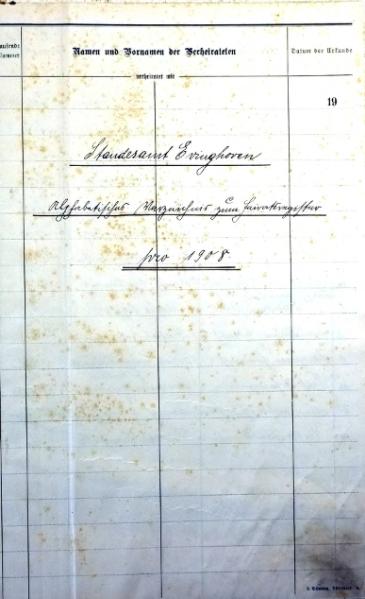 Namen und Vornamen der Verheirateten
Datum der Urkunde
verheiratet mit
19
Standesamt Evinghoven
Alphabetisches Verzeichnis zum Heiratsregister
pro 1908